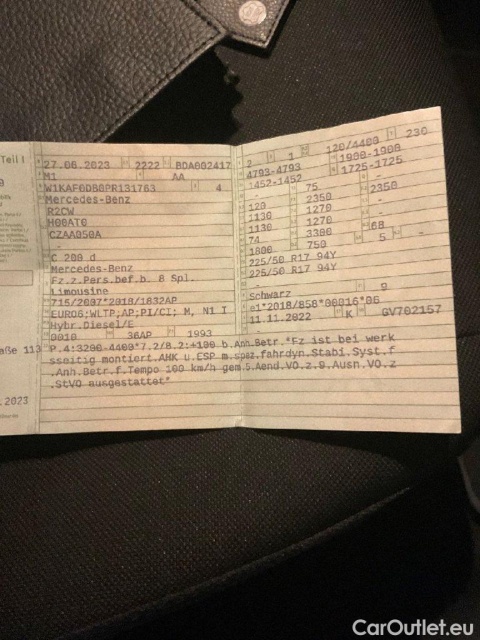 Teil I
27.06.2023 2222 BDA002417
M1 AA
W1KAF0DB0PR131783 4
Mercedes-Benz
R2CW
H00AT0
CZAA050A
-
C 200 d
Mercedes-Benz
Fz.z.Pers.bef.b. 8 Spl.
Limousine
715/2007*2018/1832AP
EURO6;WLTP;AP;PI/CI; M, N1 I
Hybr.Diesel/E
0010 36AP 1993
P.4:3200-4400*7.2/8.2:+100 b.Anh.Betr.*Fz ist bei werk
sseitig montiert.AHK u.ESP m.spez.fahrdyn.Stabi.Syst.f
.Anh.Betr.f.Tempo 100 km/h gem.5.Aend.VO.z.9.Ausn.VO.z
.StVO ausgestattet*
2 1 120/4400 230
4793-4793 1900-1900
1452-1452 1725-1725
- 75 -
120 2350 2350
1130 1270 -
1130 1270 -
74 3300 68
1800 750 5 -
225/50 R17 94Y
225/50 R17 94Y
-
Schwarz 9
e1*2018/858*00016*06
11.11.2022 K GV702157
aße 113
.2023
CarOutlet.eu